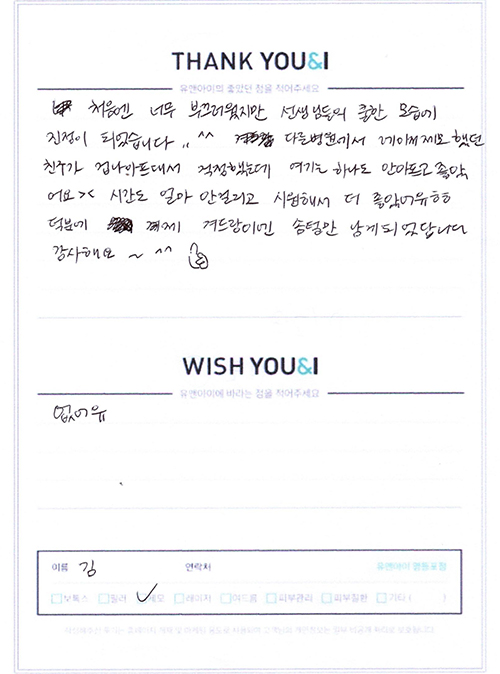 THANK YOU&I
유앤아이의 좋았던 점을 적어주세요
처음엔 너무 부끄러웠지만 선생님들의 쿨한 모습에
진정이 되었습니다.. ^^ 다른병원에서 레이저제모했던
친구가 겁나아프대서 걱정했는데 여기는 하나도 안아프고 좋았
어요>< 시간도 얼마 안걸리고 시원해서 더 좋았어유ㅎㅎ
덕분에 이제 겨드랑이엔 솜털만 남게되었답니다
감사해요 ~ ^^
WISH YOU&I
유앤아이에 바라는 점을 적어주세요
없어유
이름 김 연락처 유앤아이 명동로점
보톡스 필러 제모 레이저 여드름 피부관리 피부질환 기타 ( )